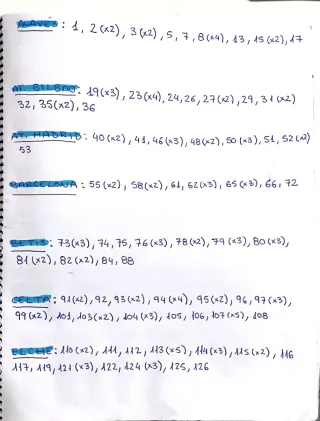 ALAVÉS: 1, 2(x2), 3(x2), 5, 7, 8(x4), 13, 15(x2), 17
AT. BILBAO: 19(x3), 23(x4), 24, 26, 27(x2), 29, 31(x2)
32, 35(x2), 36
AT. MADRID: 40(x2), 41, 46(x3), 48(x2), 50(x3), 51, 52(x2)
53
BARCELONA: 55(x2), 58(x2), 61, 62(x3), 65(x3), 66, 72
BETIS: 73(x3), 74, 75, 76(x3), 78(x2), 79(x3), 80(x3),
81(x2), 82(x2), 84, 88
CELTA: 91(x2), 92, 93(x2), 94(x4), 95(x2), 96, 97(x3),
99(x2), 101, 103(x2), 104(x3), 105, 106, 107(x5), 108
ELCHE: 110(x2), 111, 112, 113(x5), 114(x3), 115(x2), 116
117, 119, 121(x3), 122, 124(x3), 125, 126